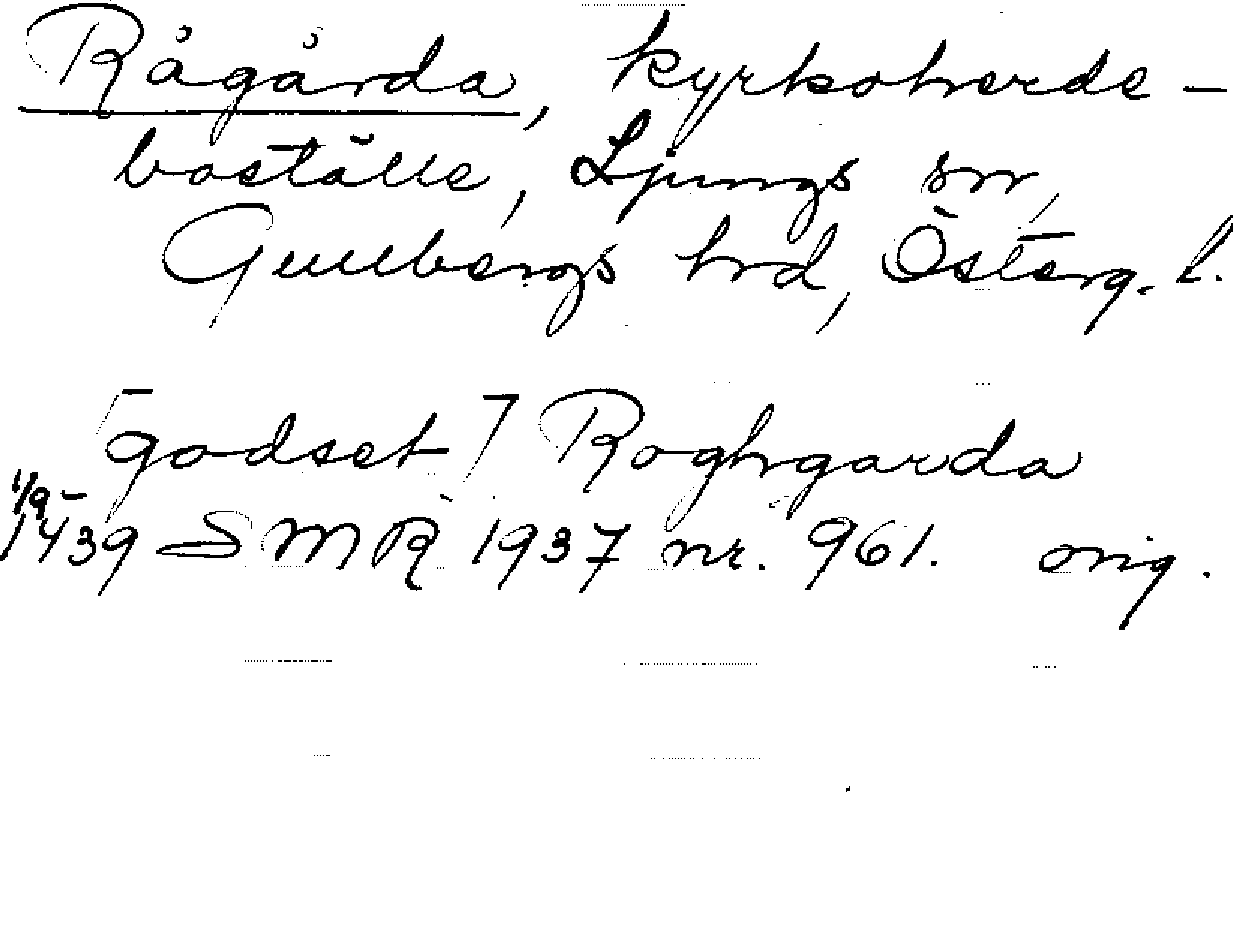 Rågårda, kyrkoherde-
boställe, Ljungs sn,
Gullbergs hrd, Österg. l.
[godset] Roghgarda
1/9-
1439 SMR 1937 nr. 961. orig.